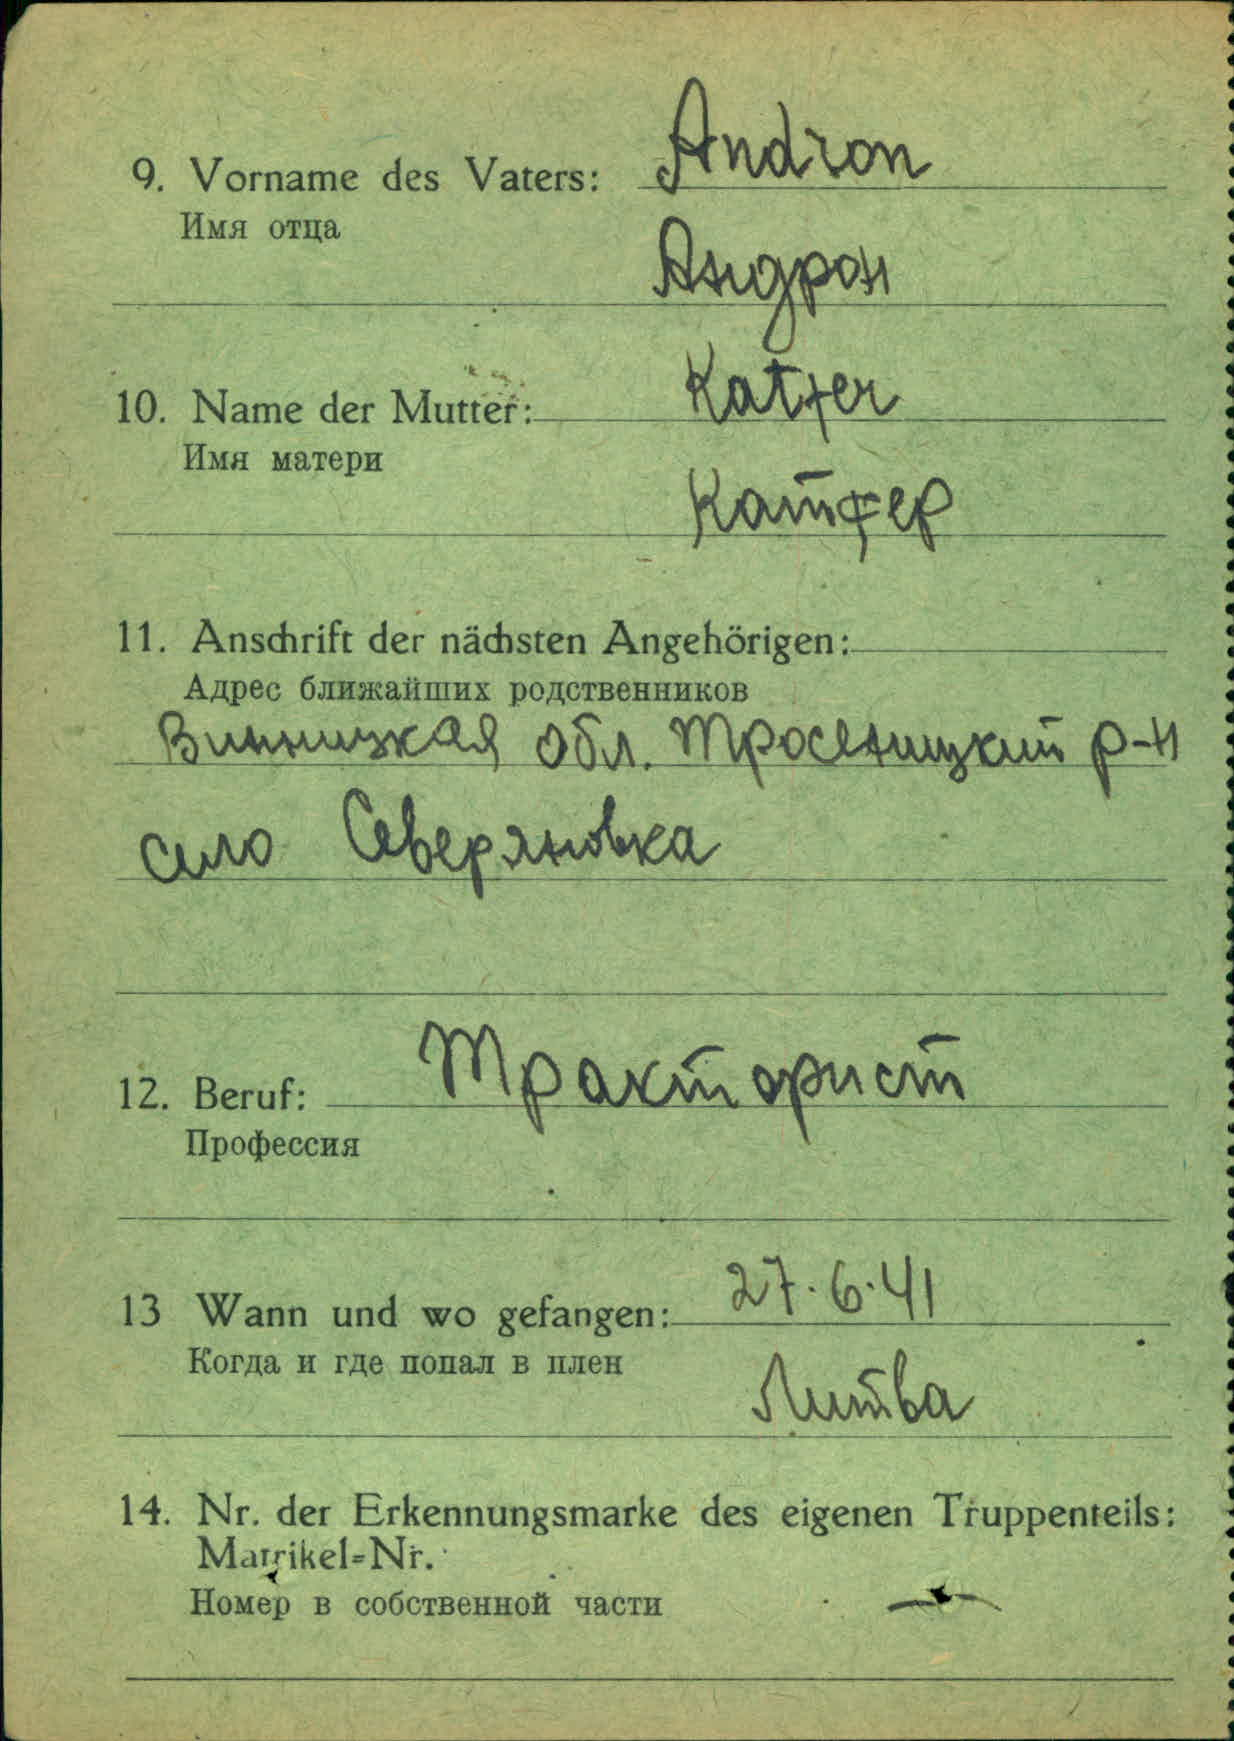 9. Vorname des Vaters: Andron
Имя отца
Андрон
10. Name der Mutter: Katfer
Имя матери
Катфер
11. Anschrift der nächsten Angehörigen:
Адрес ближайших родственников
Винницкая обл. Тросеницкий р-н
село Северяновка
12. Beruf: Тракторист
Профессия
13 Wann und wo gefangen: 27.6.41
Когда и где попал в плен
Литва
14. Nr. der Erkennungsmarke des eigenen Truppenteils:
Matrikel=Nr.
Номер в собственной части —